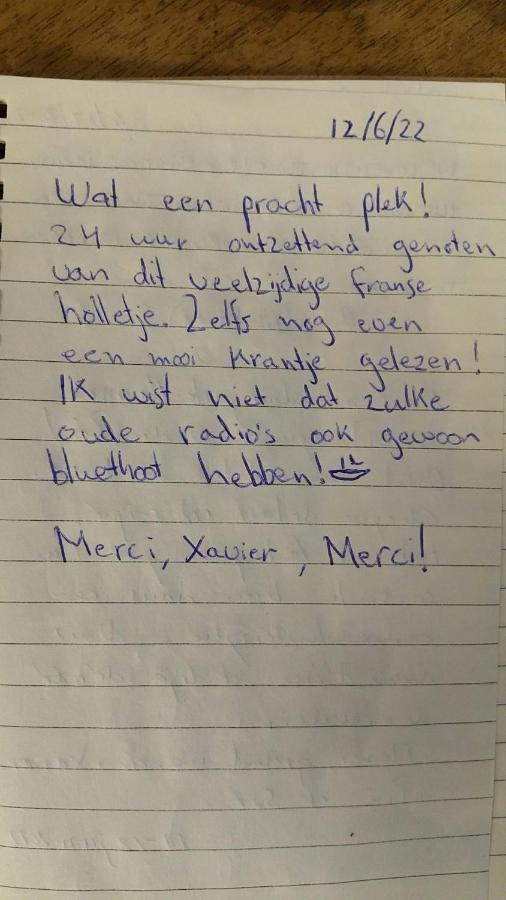 12/6/22
Wat een pracht plek!
24 uur ontzettend genoten
van dit veelzijdige franse
holletje. Zelfs nog even
een mooi Krantje gelezen!
Ik wist niet dat zulke
oude radio's ook gewoon
bluethoot hebben!
Merci, Xavier, Merci!